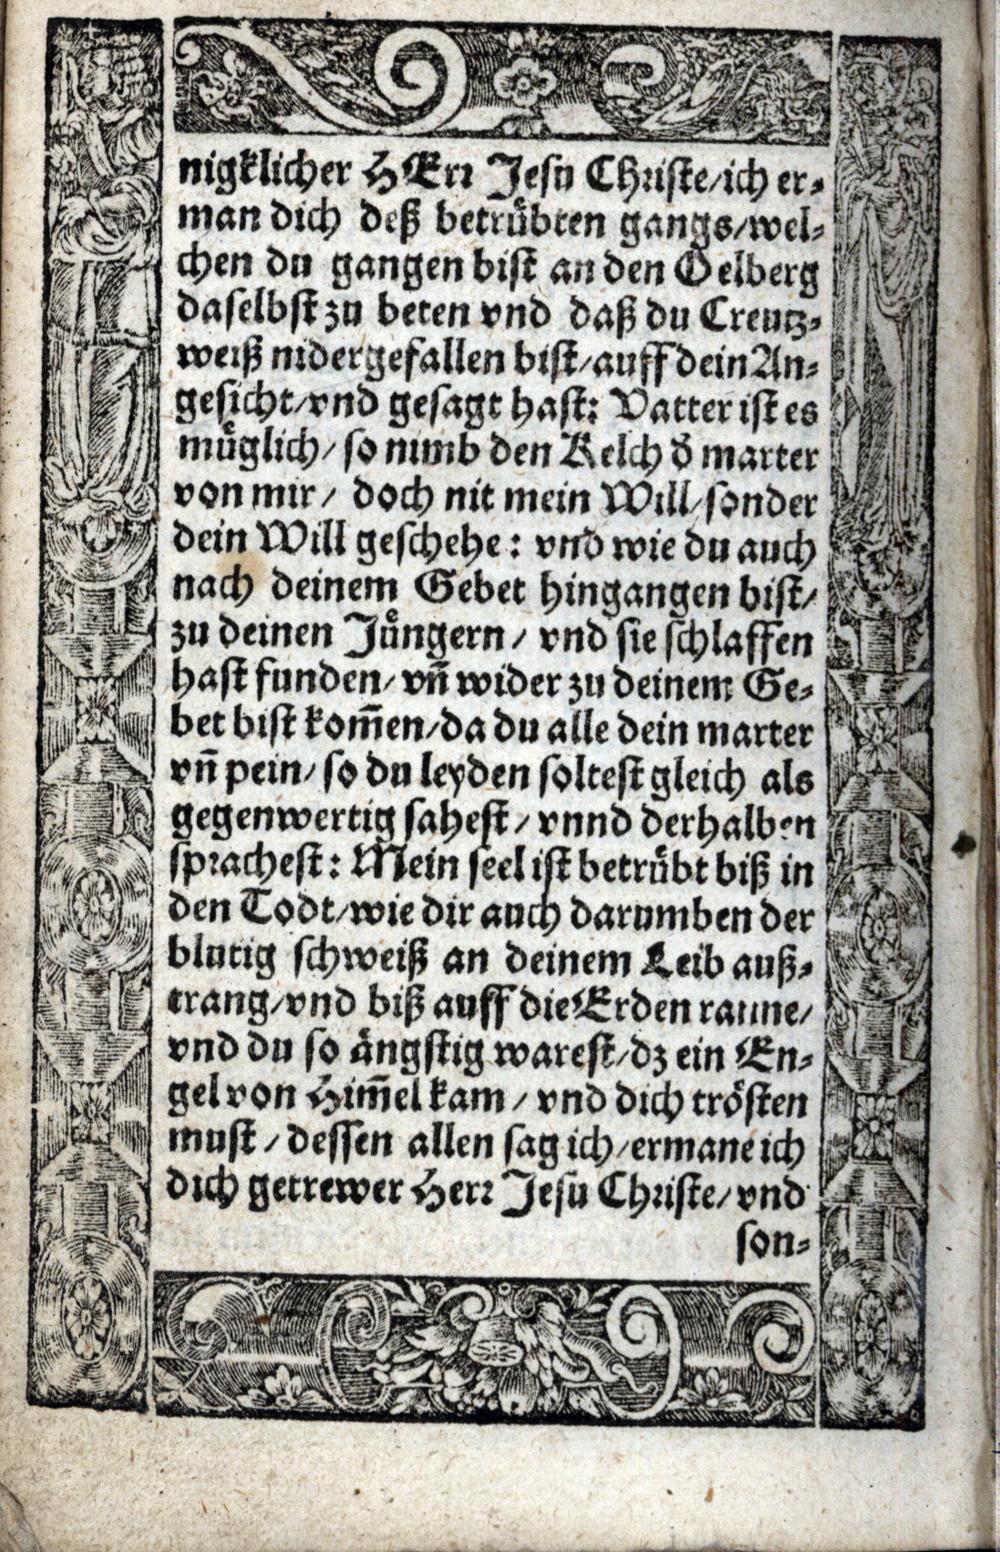 nigklicher HErr Jesu Christe/ich er⸗
man dich deß betruͤbten gangs/wel⸗
chen du gangen bist an den Oelberg
daselbst zu beten vnd daß du Creutz⸗
weiß nidergefallen bist/auff dein An⸗
gesicht/vnd gesagt hast: Vatter ist es
muͤglich/ so nimb den Kelch d̕ marter
von mir/ doch nit mein Will/sonder
dein Will geschehe: vnd wie du auch
nach deinem Gebet hingangen bist/
zu deinen Juͤngern/ vnd sie schlaffen
hast funden/ vñ wider zu deinem Ge⸗
bet bist kom̃en/da du alle dein marter
vñ pein/ so du leyden soltest gleich als
gegenwertig sahest/ vnnd derhalben
sprachest: Mein seel ist betruͤbt biß in
den Todt/wie dir auch darumben der
blutig schweiß an deinem Leib auß⸗
trang/vnd biß auff die Erden ranne/
vnd du so aͤngstig warest/dz ein En⸗
gel von Him̃el kam/ vnd dich troͤsten
must/ dessen allen sag ich/ermane ich
dich getrewer Herr Jesu Christe/ vnd
son⸗